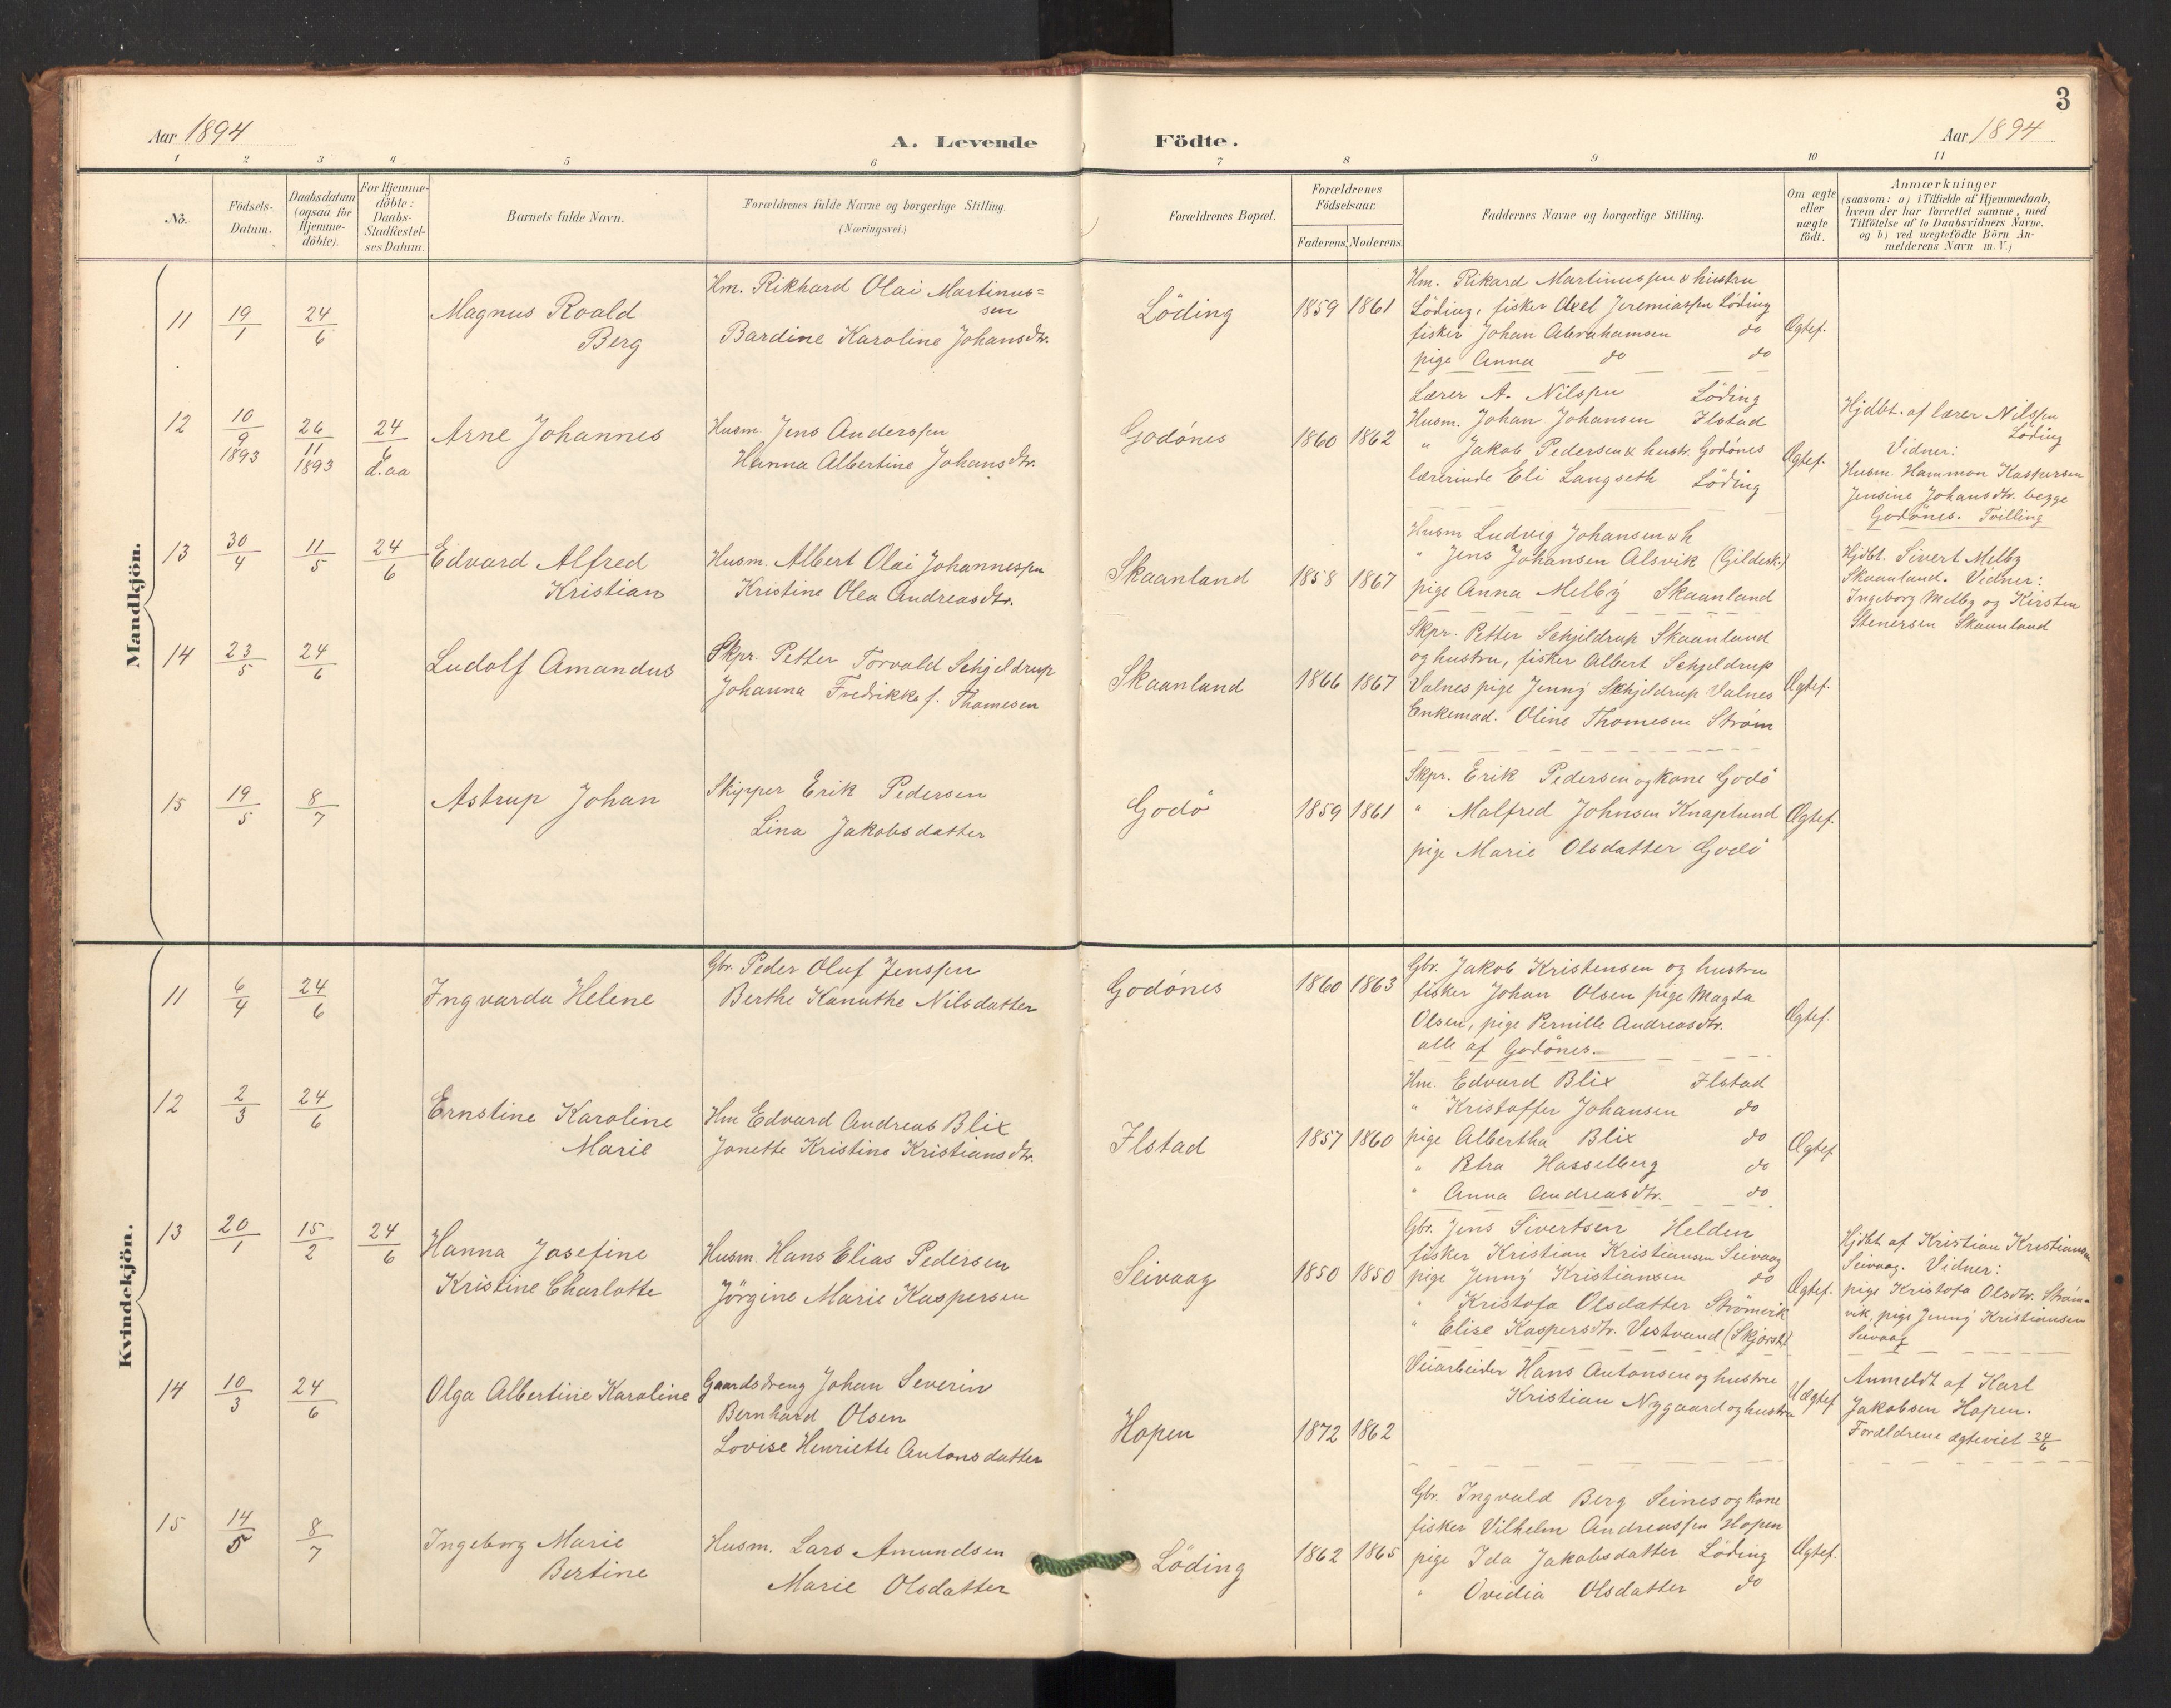 3
Aar 1894
A. Levende Födte.
Aar 1894
1 2 3 4 5 6 7 8 9 10 11
No.
Födsels-
Datum.
Daabsdatum
(ogsaa for
Hjemme-
döbte).
For Hjemme-
döbte:
Daabs-
Stadfæstel-
ses Datum.
Barnets fulde Navn.
Forældrenes fulde Navne og borgerlige Stilling.
(Næringsvei.)
Forældrenes Bopæl.
Forældrenes
Födselsaar.
Faderens. Moderens.
Faddernes Navne og borgerlige Stilling.
Om ægte
eller
uægte
födt.
Anmærkninger
(saasom: a) i Tilfælde af Hjemmedaab,
hvem der har forrettet samme, med
Tilföielse af to Daabsvidners Navne,
og b) ved uægtefödte Börn An-
melderens Navn m. V.)
Mandkjön.
11
19/1
24/6
Magnus Roald
Berg
Hm. Rikhard Olai Martinus=
sen
Bardine Karoline Johansdtr.
Löding
1859 1861
Hm. Rikard Martinussen & hustru
Löding, fisker Axel Jeremiassen Löding
fisker Johan Abrahamsen do
pige Anna do do
Ægtef.
12
10/9
1893
26/11
1893
24/6
d. aa
Arne Johannes
Husm. Jens Anderssen
Hanna Albertine Johansdtr.
Godönes
1860 1862
Lærer A. Nilssen Löding
Husm. Johan Johansen Ilstad
" Jakob Pedersen & hustr. Godönes
lærerinde Eli Langseth Löding
Ægtef.
Hjdbt. af lærer Nilssen
Löding
Vidner:
Husm. Hammon Kaspersen
Jensine Johansdtr. begge
Godönes. Tvilling
13
30/4
11/5
24/6
Edvard Alfred
Kristian
Husm. Albert Olai Johannessen
Kristine Olea Andreasdtr.
Skaanland
1858 1867
Husm Ludvig Johansen & h
" Jens Johansen Alsvik (Gildesk.)
pige Anna Melby Skaanland
Hjdbt. Sivert Melby
Skaanland. Vidner:
Ingeborg Melby og Kirsten
Stenersen Skaanland
14
23/5
24/6
Ludolf Amandus
Skpr. Petter Torvald Schjeldrup
Johanna Fredrikke f. Thomesen
Skaanland
1866 1867
Skpr. Petter Schjeldrup Skaanland
og hustru, fisker Albert Schjeldrup
Valnes pige Jenny Schjeldrup Valnes
Enkemad. Oline Thomesen Ström
Ægtef.
15
19/5
8/7
Astrup Johan
Skipper Erik Pedersen
Lina Jakobsdatter
Godö
1859 1861
Skpr. Erik Pedersen og kone Godö
" Malfred Johnsen Knaplund
pige Marie Olsdatter Godö
Ægtef.
Kvindekjön.
11
6/4
24/6
Ingvarda Helene
Gbr. Peder Oluf Jenssen
Berthe Kanuthe Nilsdatter
Godönes
1860 1863
Gbr. Jakob Kristensen og hustru
fisker Johan Olsen pige Magda
Olsen, pige Pernille Andreasdtr.
alle af Godönes.
Ægtef.
12
2/3
24/6
Ernstine Karoline
Marie
Hm Edvard Andreas Blix
Janette Kristine Kristiansdtr.
Ilstad
1857 1860
Hm. Edvard Blix Ilstad
" Kristoffer Johansen do
pige Albertha Blix do
" Petra Hasselberg do
" Anna Andreasdtr. do
Ægtef
13
20/1
15/2
24/6
Hanna Josefine
Kristine Charlotte
Husm. Hans Elias Pedersen
Jörgine Marie Kaspersen
Seivaag
1850 1850
Gbr. Jens Sivertsen Helden
fisker Kristian Kristiansen Seivaag
pige Jenny Kristiansen do
" Kristofa Olsdatter Strömvik
" Elise Kaspersdtr. Vestvand (Skjerst.)
Ægtef.
Hjdbt af Kristian Kristiansen
Seivaag. Vidner:
pige Kristofa Olsdtr. Ström-
vik, pige Jenny Kristiansen
Seivaag
14
10/3
24/6
Olga Albertine Karoline
Gaardsdreng Johan Severin
Bernhard Olsen
Lovise Henriette Antonsdatter
Hopen
1872 1862
Veiarbeider Hans Antonsen og hustru
Kristian Nygaard og hustru
Uægtef
Anmeldt af Karl
Jakobsen Hopen.
Forældrene ægteviet 24/6
15
14/5
8/7
Ingeborg Marie
Bertine
Husm. Lars Amundsen
Marie Olsdatter
Löding
1862 1865
Gbr. Ingvald Berg Seines og kone
fisker Vilhelm Andreassen Hopen
pige Ida Jakobsdatter Löding
" Ovidia Olsdatter do
Ægtef.